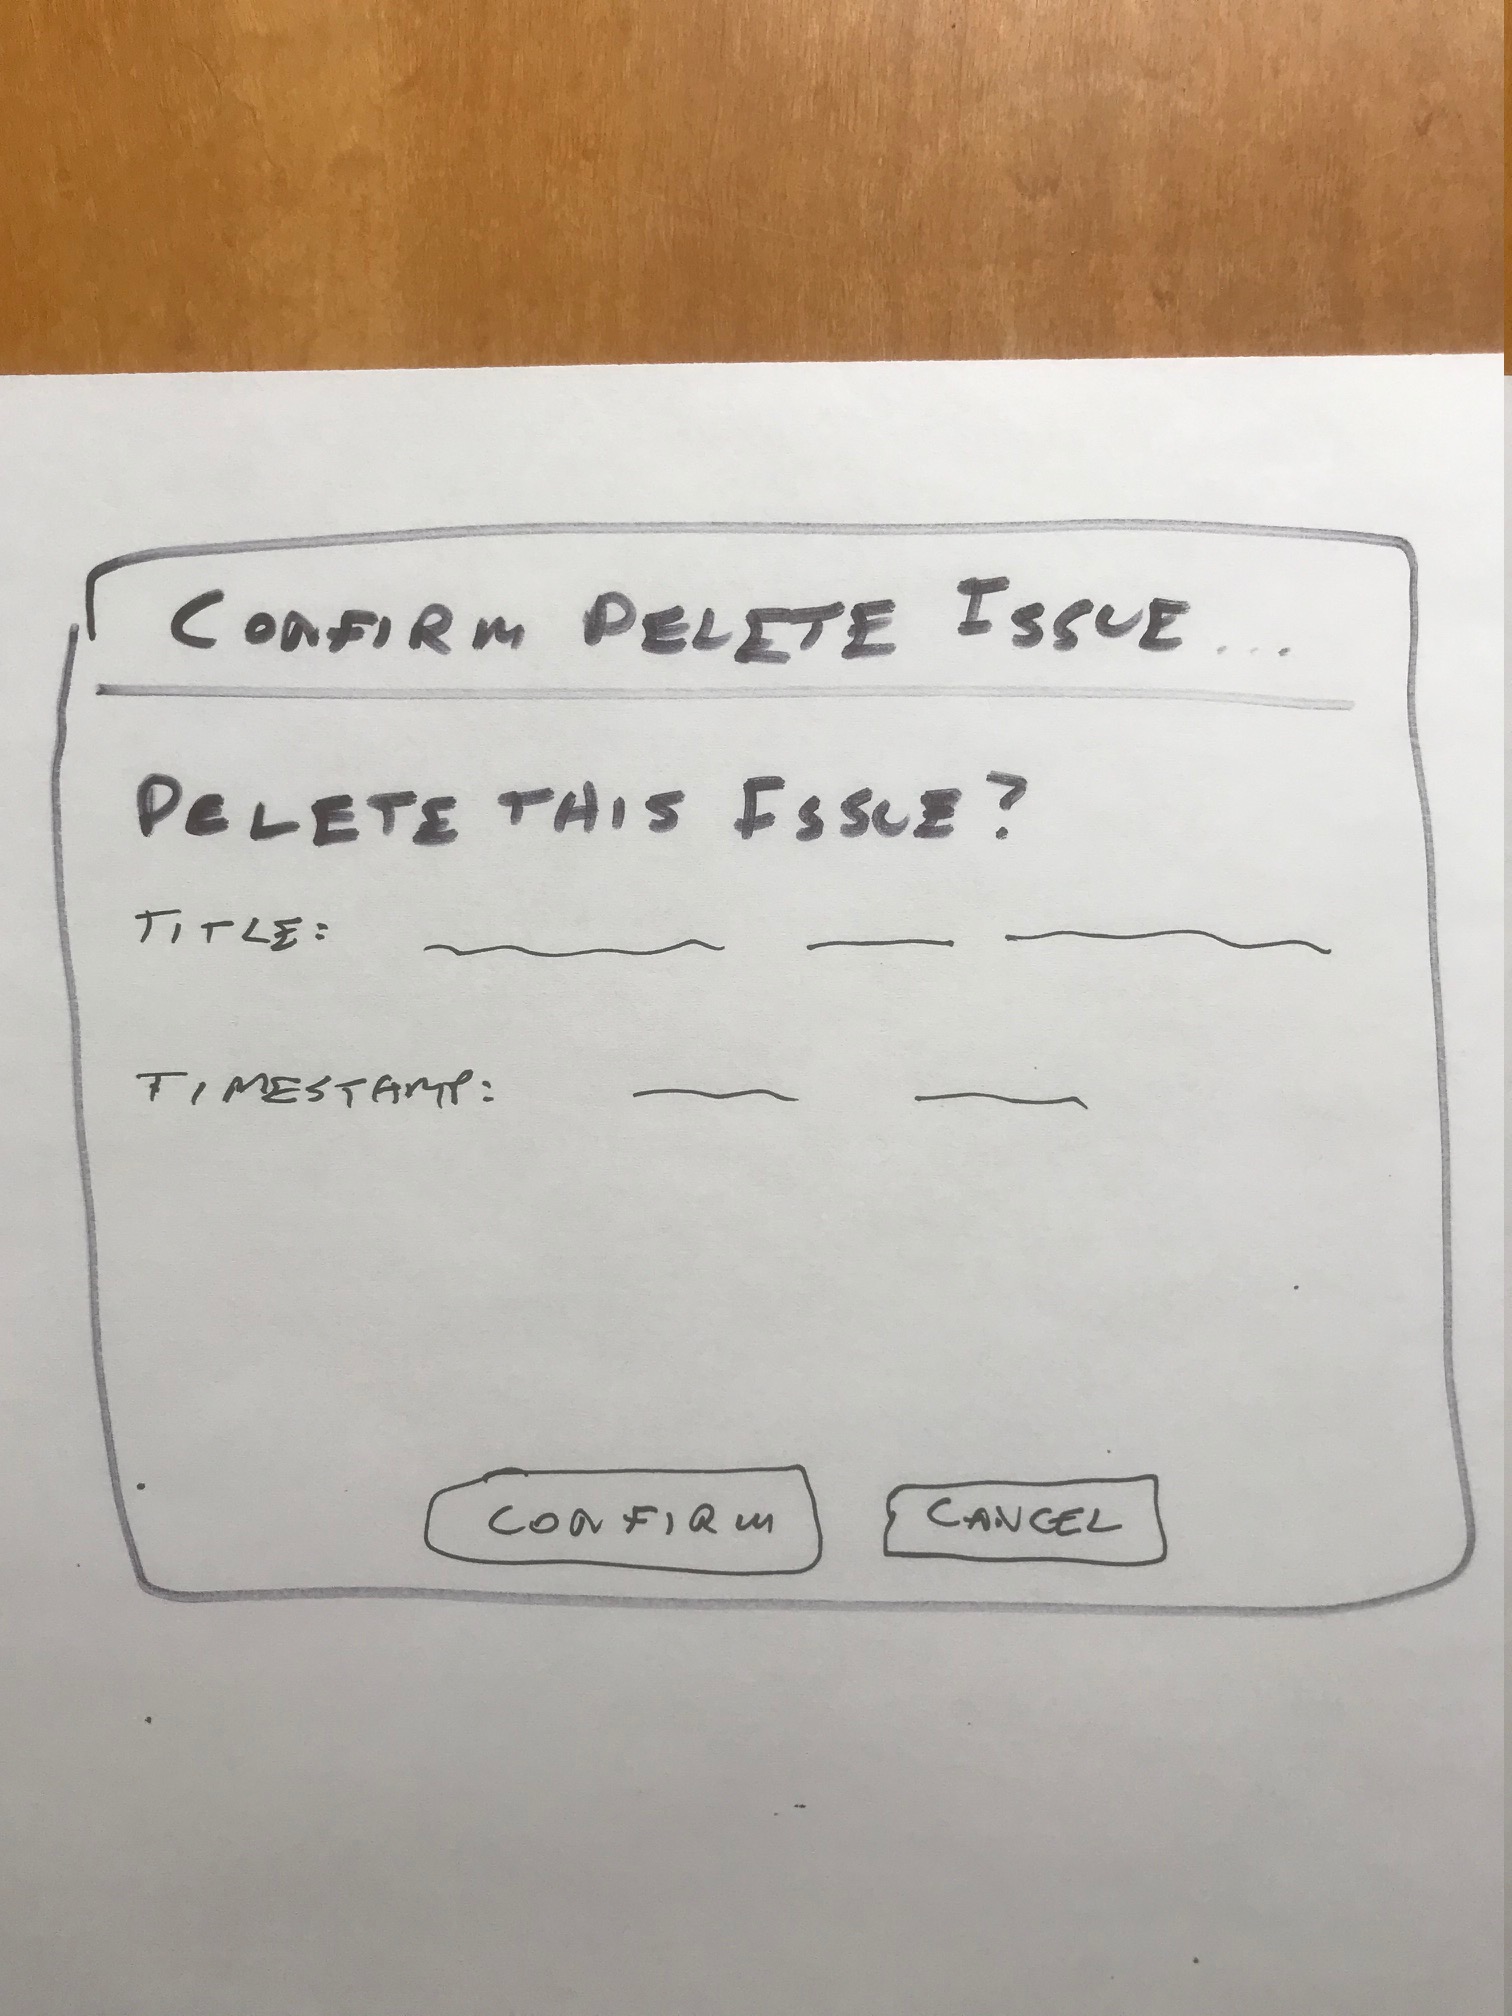 CONFIRM DELETE ISSUE...
DELETE THIS ISSUE?
TITLE:
TIMESTAMP:
CONFIRM CANCEL